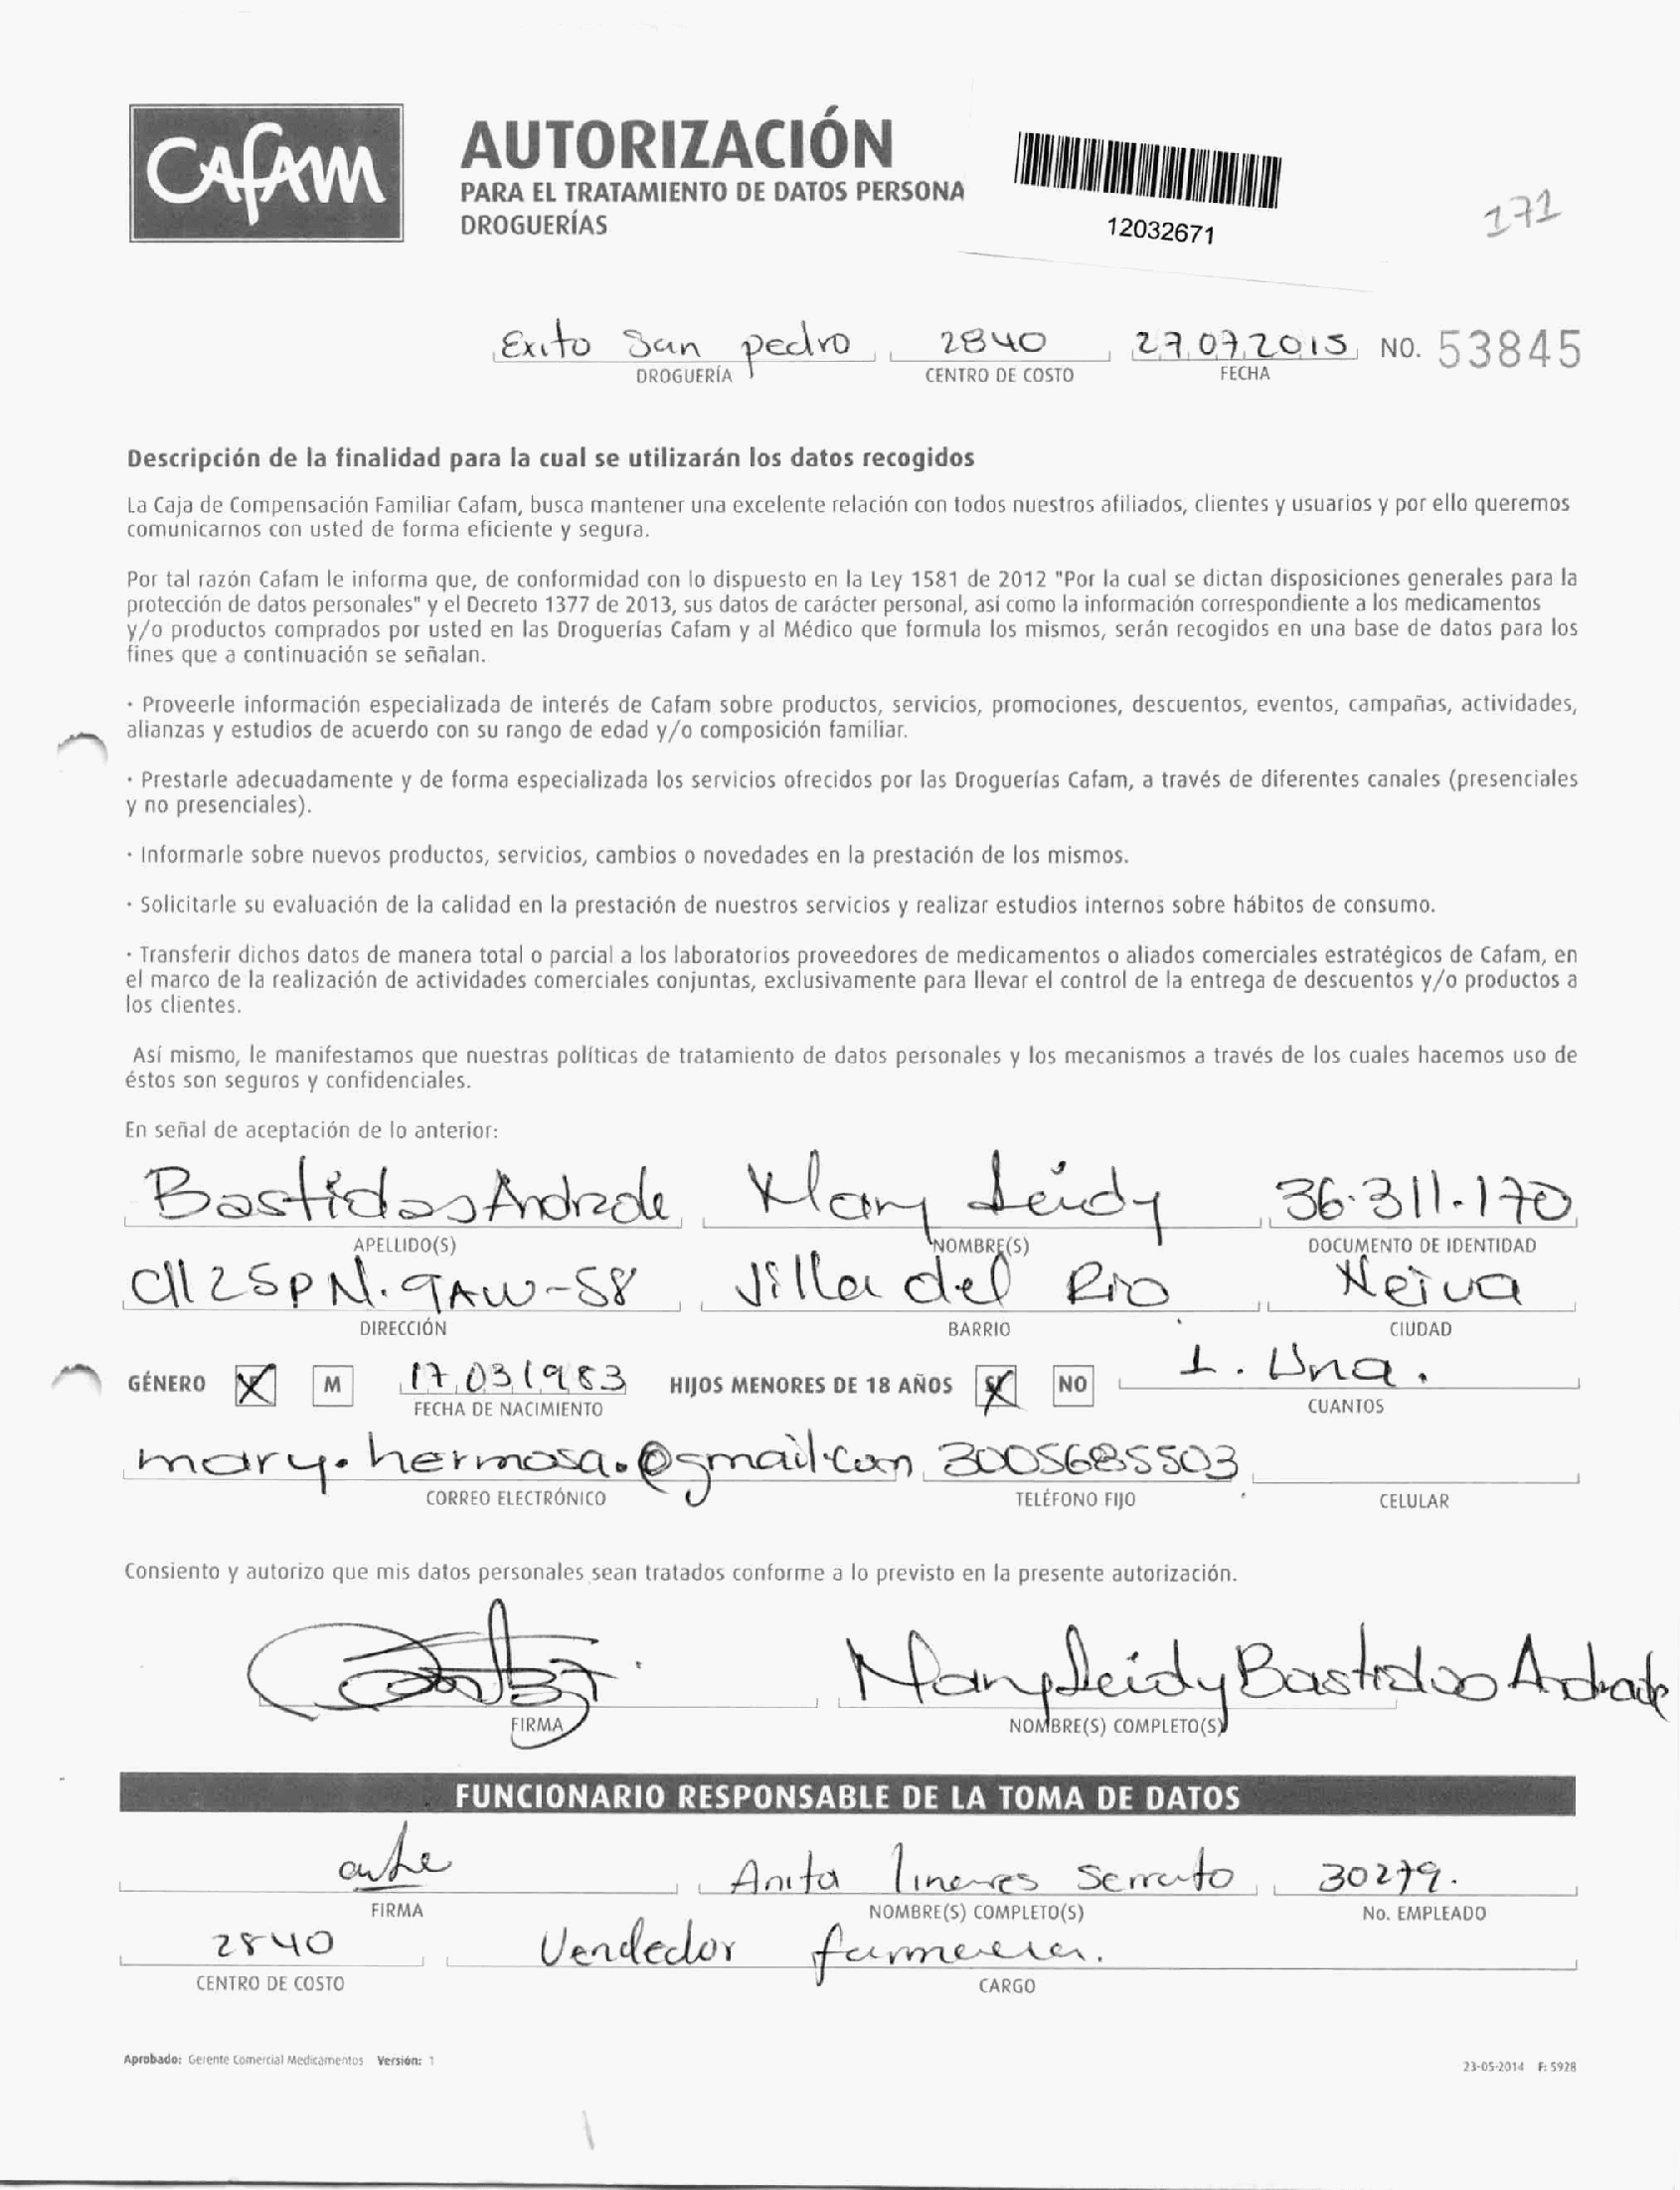 CAFAM
AUTORIZACIÓN
PARA EL TRATAMIENTO DE DATOS PERSONA
DROGUERÍAS
12032671
171
Exito San pedro 2840 27.07.2015 NO. 53845
DROGUERÍA CENTRO DE COSTO FECHA
Descripción de la finalidad para la cual se utilizarán los datos recogidos
La Caja de Compensación Familiar Cafam, busca mantener una excelente relación con todos nuestros afiliados, clientes y usuarios y por ello queremos
comunicarnos con usted de forma eficiente y segura.
Por tal razón Cafam le informa que, de conformidad con lo dispuesto en la Ley 1581 de 2012 "Por la cual se dictan disposiciones generales para la
protección de datos personales" y el Decreto 1377 de 2013, sus datos de carácter personal, así como la información correspondiente a los medicamentos
y/o productos comprados por usted en las Droguerías Cafam y al Médico que formula los mismos, serán recogidos en una base de datos para los
fines que a continuación se señalan.
· Proveerle información especializada de interés de Cafam sobre productos, servicios, promociones, descuentos, eventos, campañas, actividades,
alianzas y estudios de acuerdo con su rango de edad y/o composición familiar.
· Prestarle adecuadamente y de forma especializada los servicios ofrecidos por las Droguerías Cafam, a través de diferentes canales (presenciales
y no presenciales).
· Informarle sobre nuevos productos, servicios, cambios o novedades en la prestación de los mismos.
· Solicitarle su evaluación de la calidad en la prestación de nuestros servicios y realizar estudios internos sobre hábitos de consumo.
· Transferir dichos datos de manera total o parcial a los laboratorios proveedores de medicamentos o aliados comerciales estratégicos de Cafam, en
el marco de la realización de actividades comerciales conjuntas, exclusivamente para llevar el control de la entrega de descuentos y/o productos a
los clientes.
Así mismo, le manifestamos que nuestras políticas de tratamiento de datos personales y los mecanismos a través de los cuales hacemos uso de
éstos son seguros y confidenciales.
En señal de aceptación de lo anterior:
Bastidas Andrade Mary Leidy 36.311.170
APELLIDO(S) NOMBRE(S) DOCUMENTO DE IDENTIDAD
Cll 25P N. 9AW-58 Villa del Rio Neiva
DIRECCIÓN BARRIO CIUDAD
GÉNERO X M 17031983 HIJOS MENORES DE 18 AÑOS X NO 1. Una.
FECHA DE NACIMIENTO CUANTOS
mary.hermosa.@gmail.com 3005685503
CORREO ELECTRÓNICO TELÉFONO FIJO CELULAR
Consiento y autorizo que mis datos personales sean tratados conforme a lo previsto en la presente autorización.
Mary Leidy Bastidas Andrade
FIRMA NOMBRE(S) COMPLETO(S)
FUNCIONARIO RESPONSABLE DE LA TOMA DE DATOS
Anita linares Serrato 30279.
FIRMA NOMBRE(S) COMPLETO(S) No. EMPLEADO
2840 Vendedor
CENTRO DE COSTO CARGO
Aprobado: Gerente Comercial Medicamentos Versión: 1
23-05-2014 F: 5928